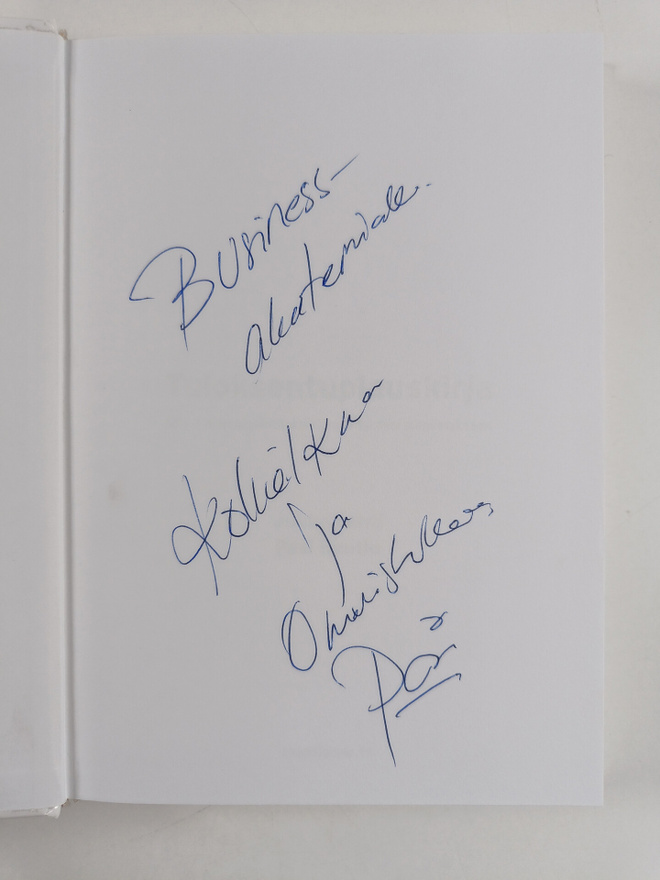 Business-
akatemialle.
Kokeilkaa
ja
Onnistukaa